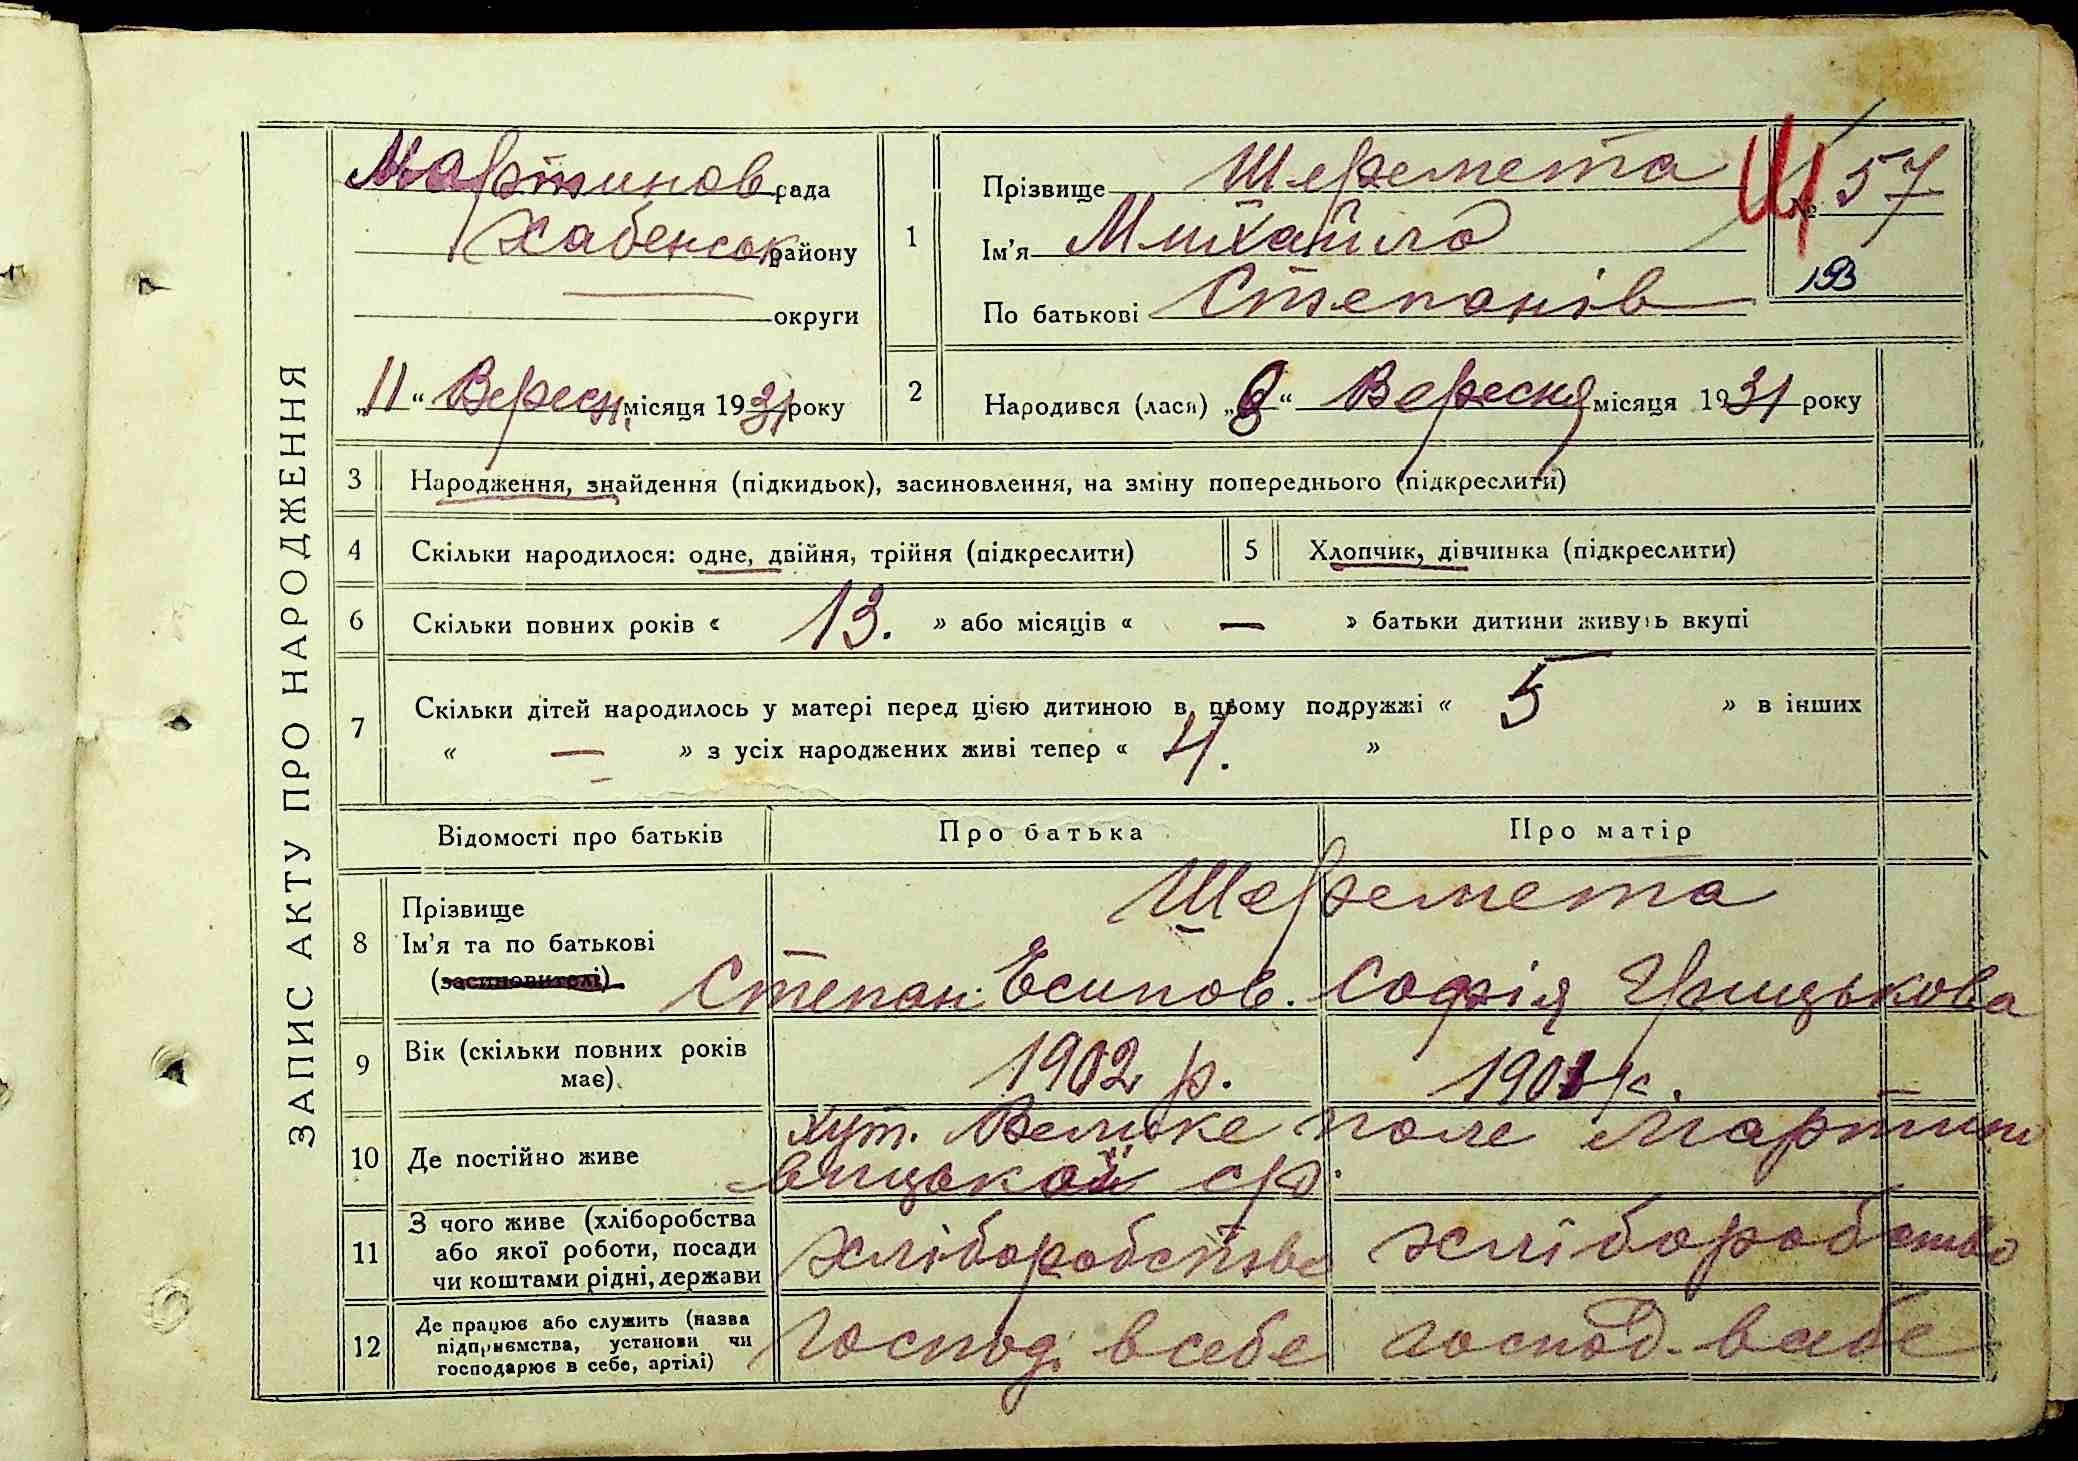 ЗАПИС АКТУ ПРО НАРОДЖЕННЯ
Мартинов рада
Хабенськ району
— округи
„11“ Вересн. місяця 1931 року
1
Прізвище Шеремета
Ім'я Михайло
По батькові Степанів
Ш
№ 57
193
2
Народився (лася) „8“ Вересня місяця 1931 року
3 Народження, знайдення (підкидьок), засиновлення, на зміну попереднього (підкреслити)
4 Скільки народилося: одне, двійня, трійня (підкреслити)
5 Хлопчик, дівчинка (підкреслити)
6 Скільки повних років « 13. » або місяців « — » батьки дитини живуть вкупі
7 Скільки дітей народилось у матері перед цією дитиною в цьому подружжі « 5 » в інших
« — » з усіх народжених живі тепер « 4. »
Відомості про батьків Про батька Про матір
8 Прізвище
Ім'я та по батькові
(засиновителі)
Шеремета
Степан Есипов. Софія Грицькова
9 Вік (скільки повних років
має)
1902 р. 1901 р.
10 Де постійно живе
хут. Велике поле Мартино
вицької с/р.
11 З чого живе (хліборобства
або якої роботи, посади
чи коштами рідні, держави
хліборобство хліборобство
12 Де працює або служить (назва
підприємства, установи чи
господарює в себе, артілі)
господ. в себе господ. в себе